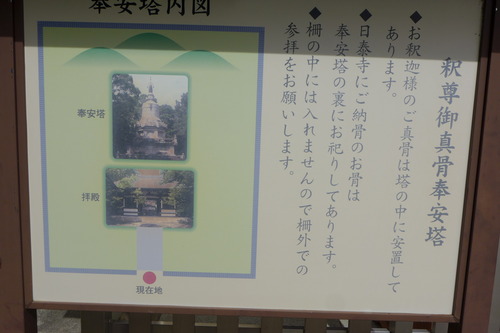 釈尊御真骨奉安塔
◆お釈迦様のご真骨は塔の中に安置して
あります。
◆日泰寺にご納骨のお骨は
奉安塔の裏にお祀りしてあります。
◆柵の中には入れませんので柵外での
参拝をお願いします。
奉安塔内図
奉安塔
拝殿
現在地